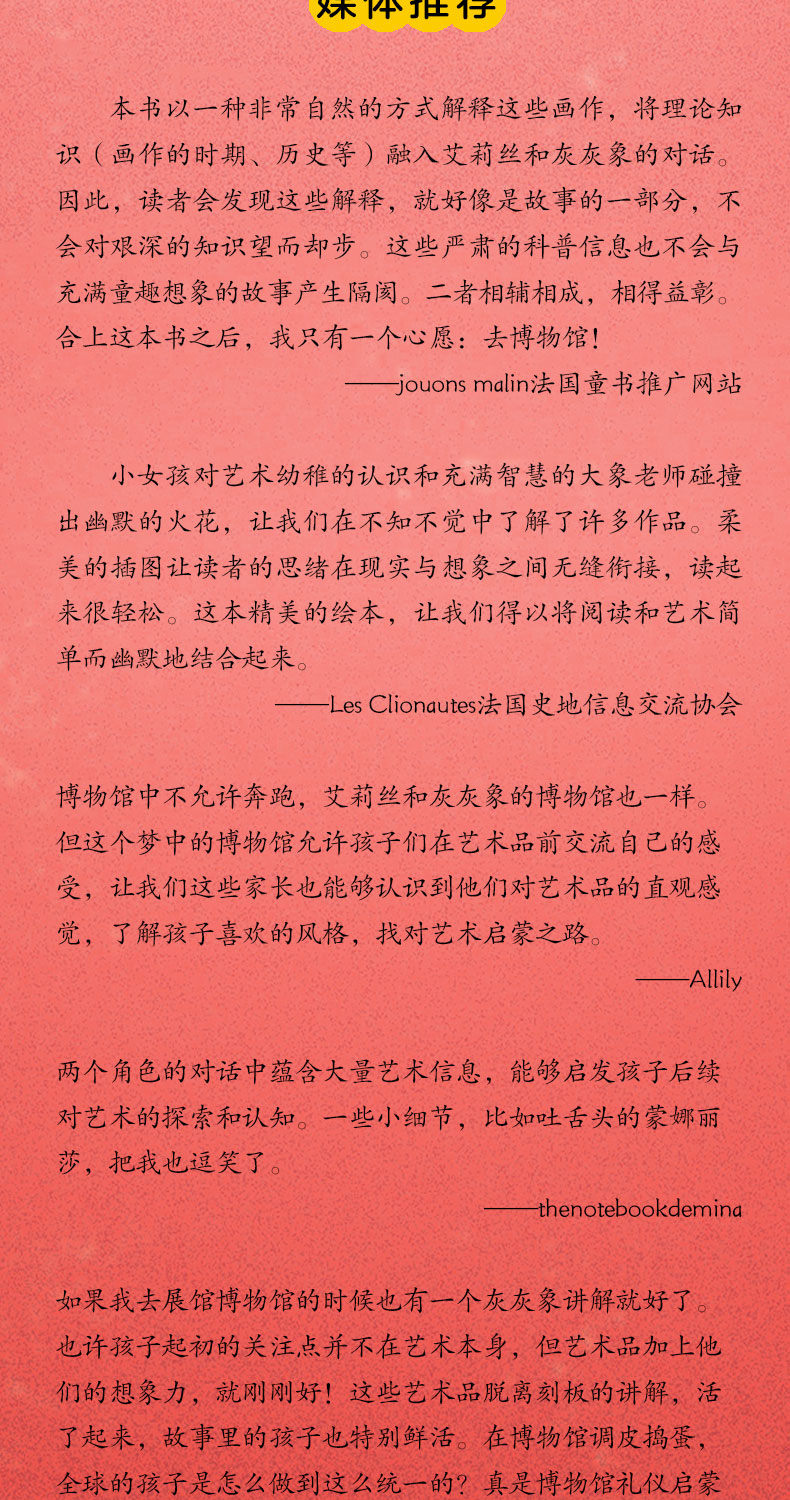 媒体推荐
本书以一种非常自然的方式解释这些画作，将理论知
识（画作的时期、历史等）融入艾莉丝和灰灰象的对话。
因此，读者会发现这些解释，就好像是故事的一部分，不
会对艰深的知识望而却步。这些严肃的科普信息也不会与
充满童趣想象的故事产生隔阂。二者相辅相成，相得益彰。
合上这本书之后，我只有一个心愿：去博物馆！
——jouons malin法国童书推广网站
小女孩对艺术幼稚的认识和充满智慧的大象老师碰撞
出幽默的火花，让我们在不知不觉中了解了许多作品。柔
美的插图让读者的思绪在现实与想象之间无缝衔接，读起
来很轻松。这本精美的绘本，让我们得以将阅读和艺术简
单而幽默地结合起来。
——Les Clionautes法国史地信息交流协会
博物馆中不允许奔跑，艾莉丝和灰灰象的博物馆也一样。
但这个梦中的博物馆允许孩子们在艺术品前交流自己的感
受，让我们这些家长也能够认识到他们对艺术品的直观感
觉，了解孩子喜欢的风格，找对艺术启蒙之路。
——Allily
两个角色的对话中蕴含大量艺术信息，能够启发孩子后续
对艺术的探索和认知。一些小细节，比如吐舌头的蒙娜丽
莎，把我也逗笑了。
——thenotebookdemina
如果我去展馆博物馆的时候也有一个灰灰象讲解就好了。
也许孩子起初的关注点并不在艺术本身，但艺术品加上他
们的想象力，就刚刚好！这些艺术品脱离刻板的讲解，活
了起来，故事里的孩子也特别鲜活。在博物馆调皮捣蛋，
全球的孩子是怎么做到这么统一的？真是博物馆礼仪启蒙